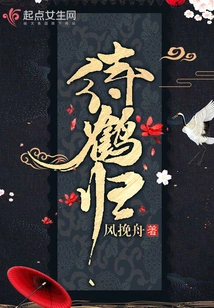 起点女生网
待鹤归
风挽舟 著